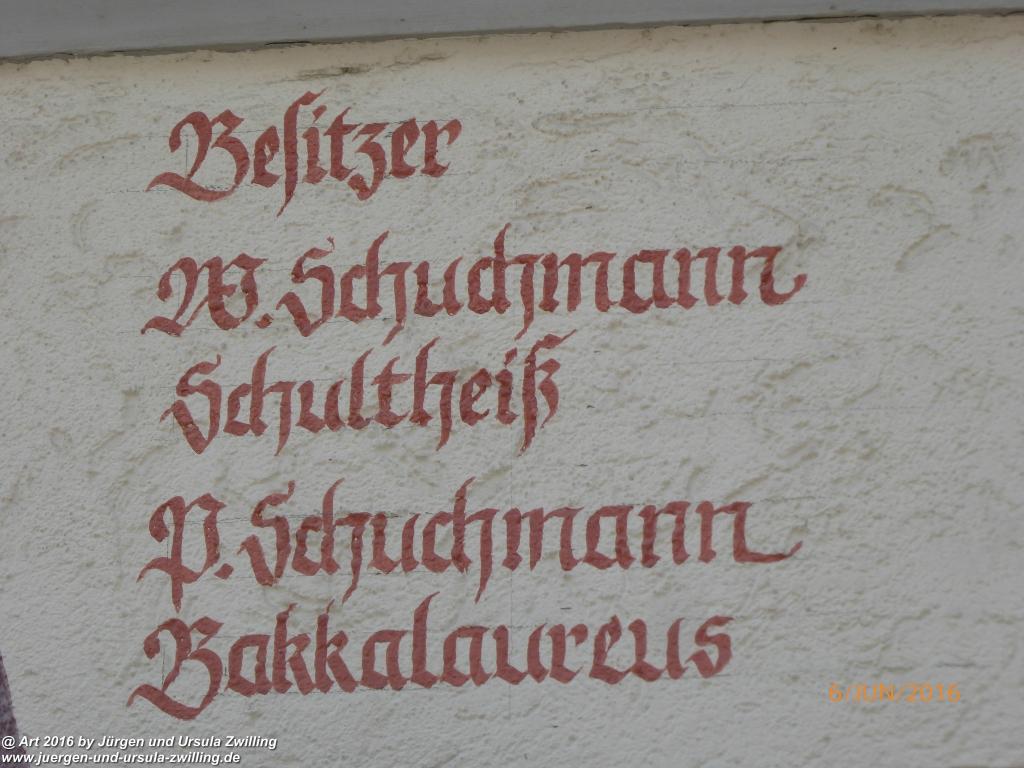 Besitzer
W. Schuchmann
Schultheiß
P. Schuchmann
Bakkalaureus
6/JUN/2016
@ Art 2016 by Jürgen und Ursula Zwilling
www.juergen-und-ursula-zwilling.de